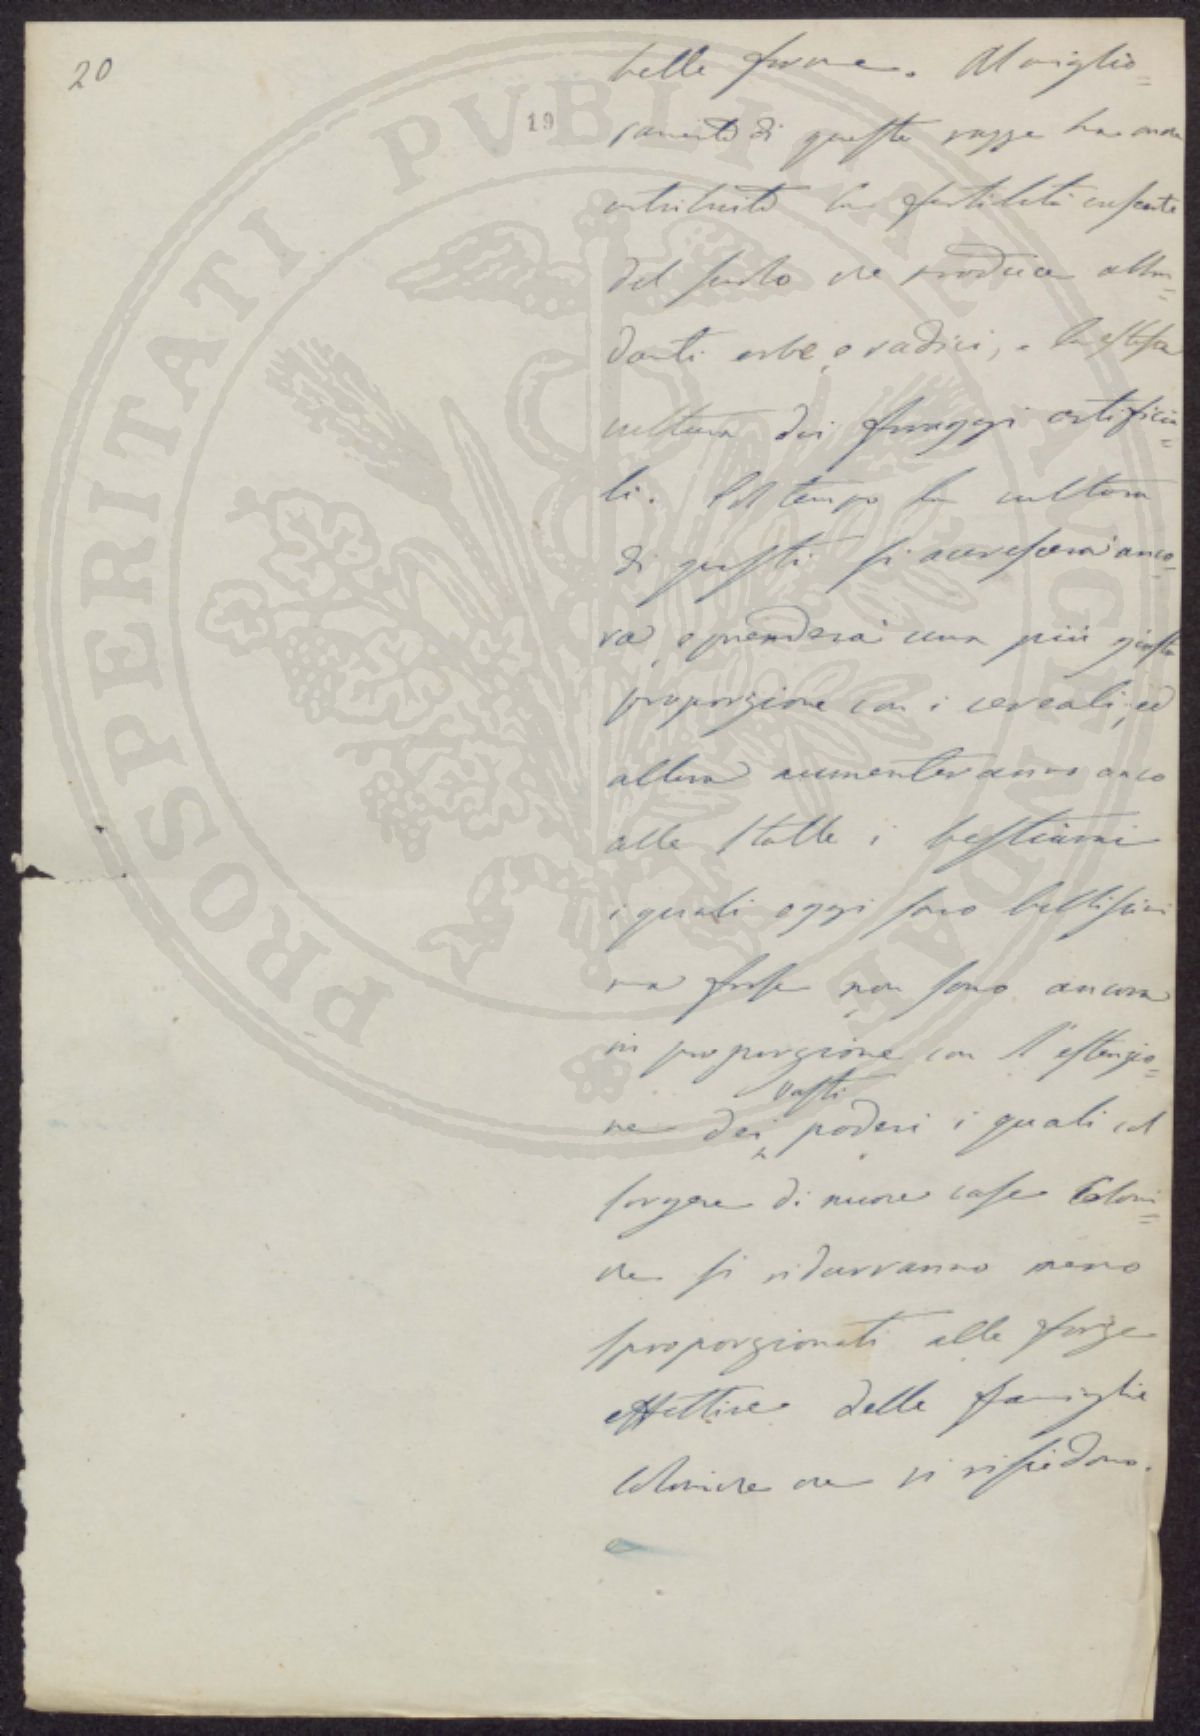 20
19
PROSPERITATI PVBLICAE AVGENDAE
belle forme. Al miglio=
ramento di queste razze ha anche
contribuito la fertilità crescente
del suolo che produce abbon=
danti erbe e radici, e la estesa
cultura dei foraggi artificia=
li. Col tempo la cultura
di questi si accrescerà anco=
ra, e prenderà una più giusta
proporzione con i cereali, ed
allora aumenteranno anco
alle stalle i bestiami
i quali oggi sono bellissimi
ma forse non sono ancora
in proporzione con l'estenzio=
ne dei vasti poderi i quali col
sorgere di nuove case Coloni=
che si ridurranno meno
sproporzionati alle forze
effettive delle famiglie
coloniche che vi risiedono.